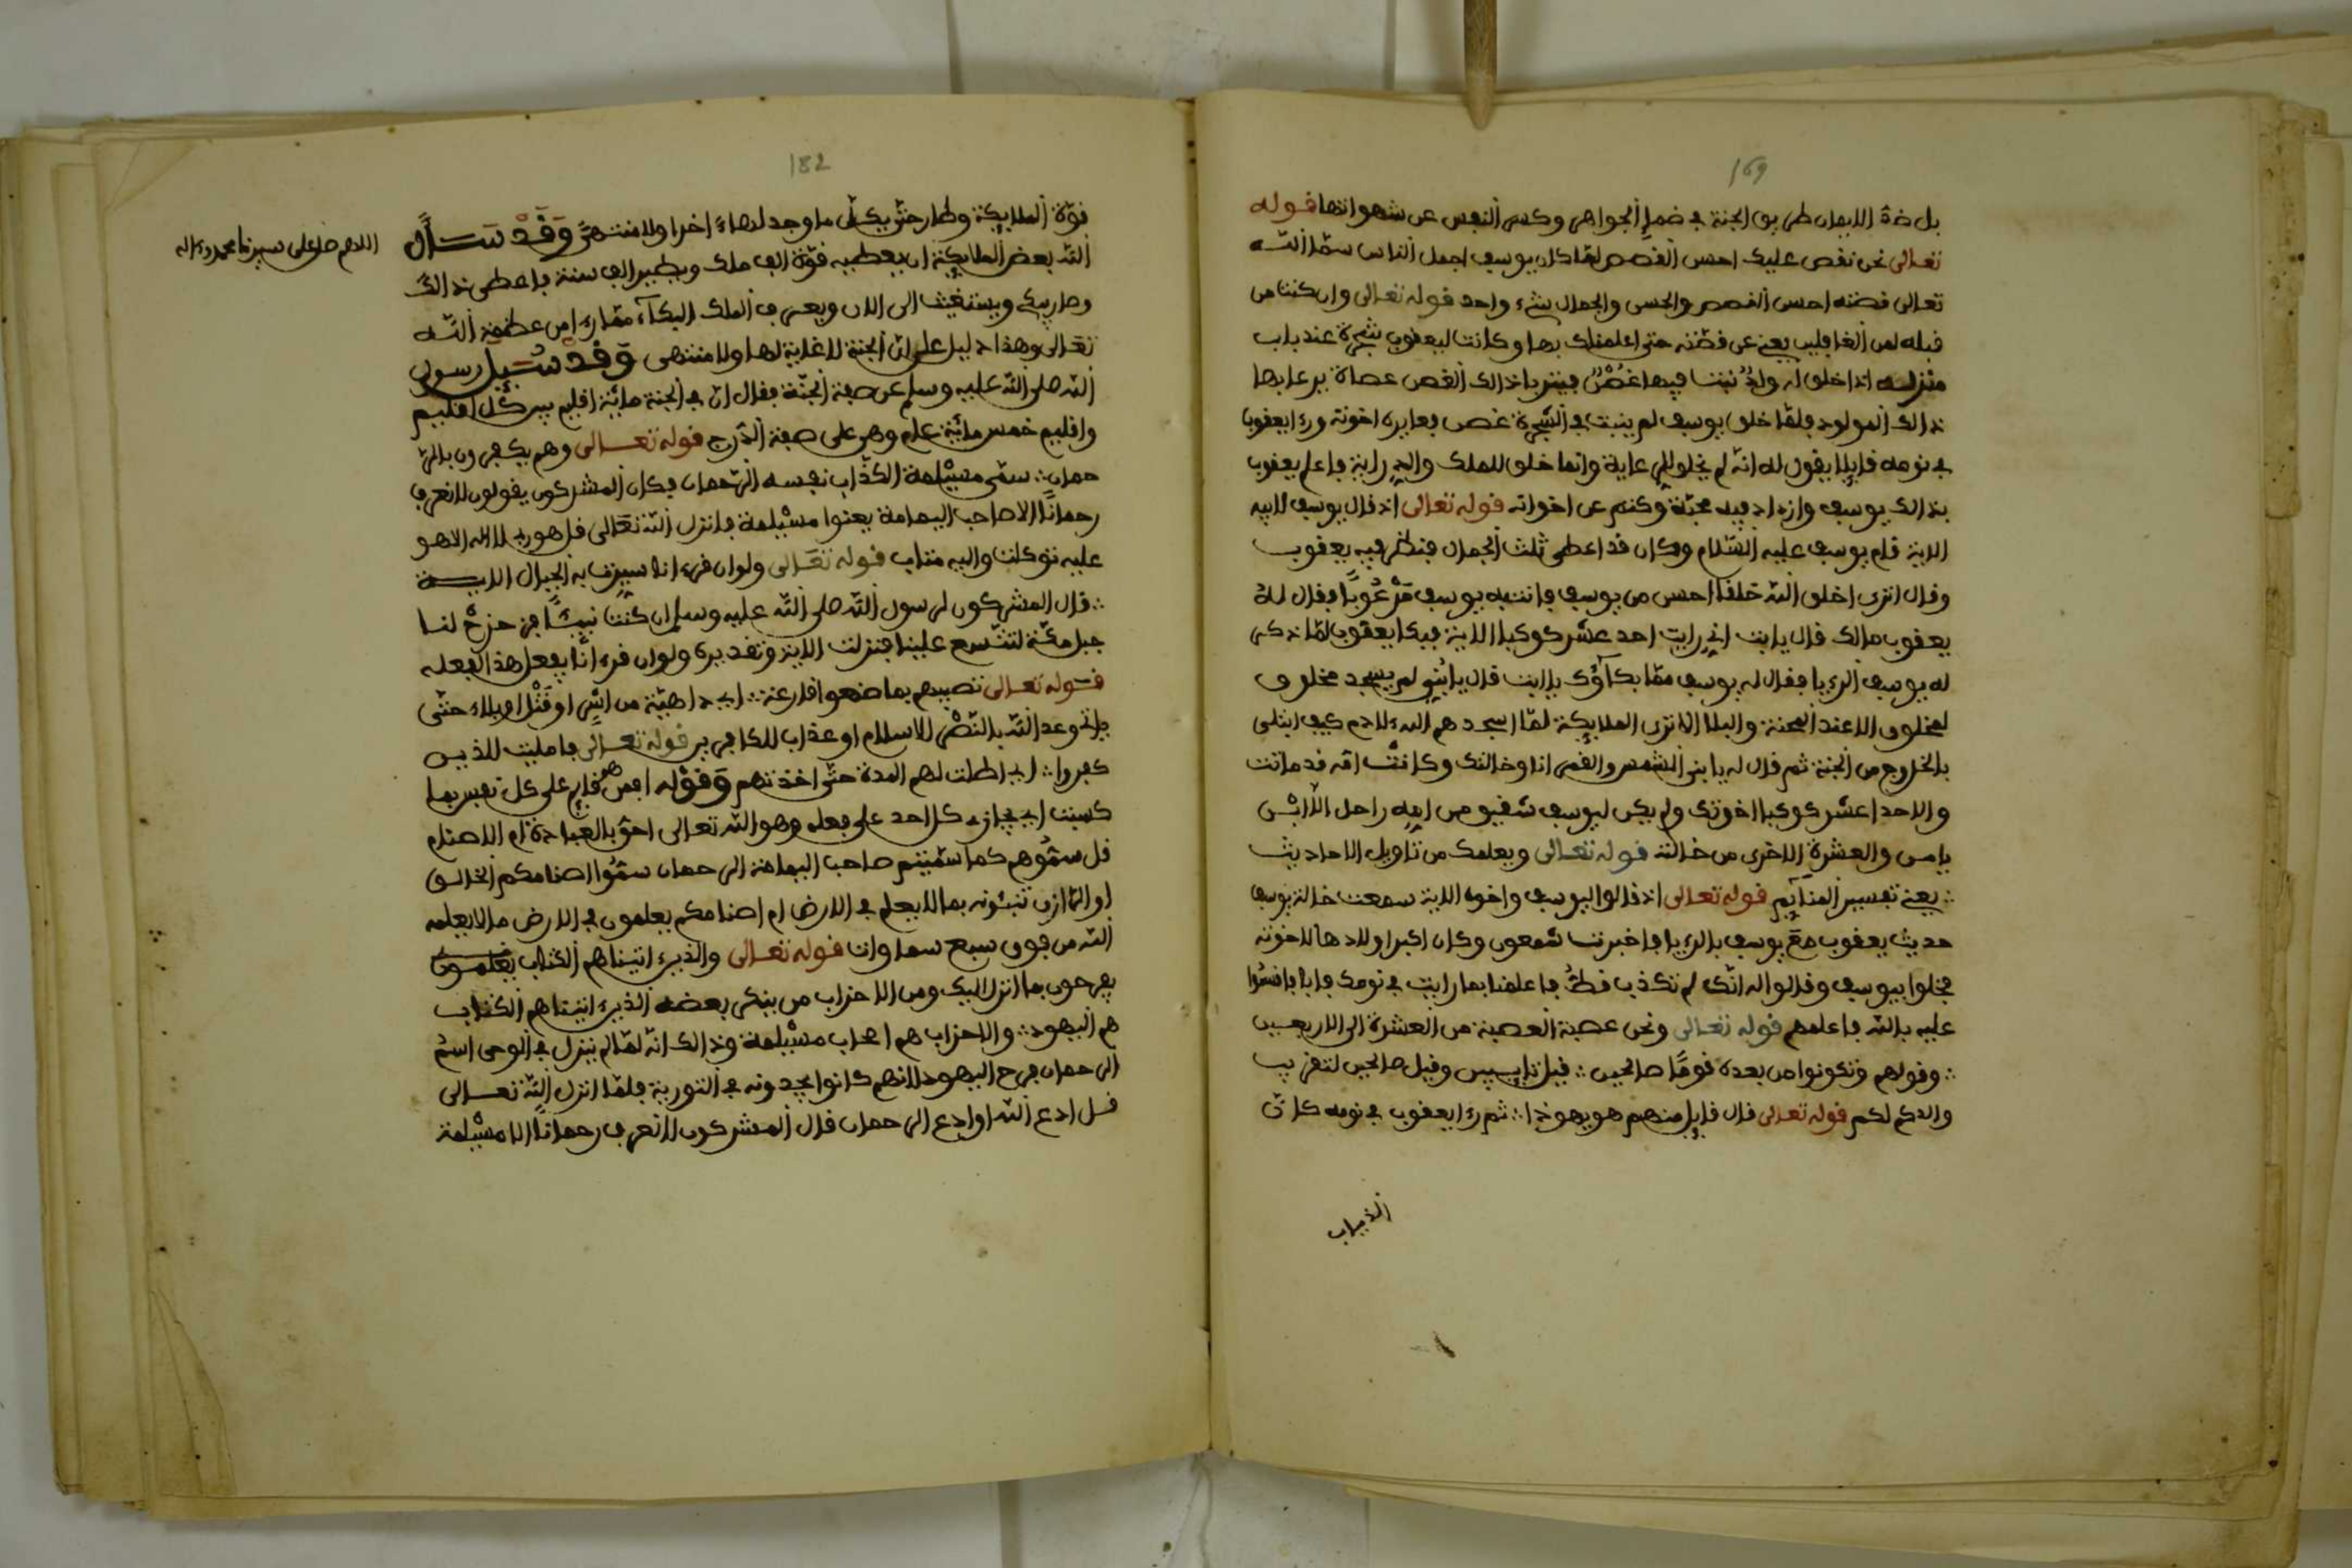 169
بل ذة الايمان طريق الجنة في ضم الجواهر وكسر النفس عن شهواتها قوله
تعالى نحن نقص عليك احسن القصص لما كان يوسف اجمل الناس سما الله
تعالى قصته احسن القصص والحسن والجمال شيء واحد قوله تعالى وان كنت من
قبله لمن الغافلين يعني عن قصته حتى اعلمناك بها وكانت ليعقوب شجرة عند باب
منزله اذا خلق له ولد نبت فيها غصن فيتربا ذالك الغصن عصاة يرعا بها
ذالك المولود فلما خلق يوسف لم ينبت في الشجرة غصن فعايره اخوته ورءا يعقوب
في نومه قايلا يقول له انه لم يخلق للرعاية وانما خلق للملك والدراية فاعلم يعقوب
بذالك يوسف وازداد فيه محبة وكتم عن اخواته قوله تعالى اذ قال يوسف لابيه
الاية قام يوسف عليه السلام وكان قد اعطي ثلث الجمال فنظر فيه يعقوب
وقال اترى اخلق الله خلقا احسن من يوسف فانتبه يوسف مرعوبا فقال له
يعقوب مالك قال يابت اني رايت احد عشر كوكبا الاية فبكا يعقوب لما ذكر
له يوسف الريا فقال له يوسف مما بكاؤك ياابت قال يابني لم يسجد مخلوق
لمخلوق الا عند المحنة والبلا الا ترى الملايكة لما اسجدهم الله لادم كيف ابتلى
بالخروج من الجنة ثم قال له يابني الشمس والقمر انا وخالتك وكانت امه قد ماتت
والاحدا عشر كوكبا اخوتك ولم يكن ليوسف شقيق من امه راحل الا ابن
يامن والعشرة الاخرى من خالته قوله تعالى ويعلمك من تاويل الاحاديث
يعني تفسير المنايم قوله تعالى اذ قالوا ليوسف واخوه الاية سمعت خالة يوسف
حديث يعقوب مع يوسف بالريا فاخبرت شمعون وكان اكبر اولادها لاخوته
فخلوا بيوسف وقالوا له انك لم تكذب قط فاعلمنا بما رايت في نومك فابا فاقسموا
عليه بالله فاعلمهم قوله تعالى ونحن عصبة العصبة من العشرة الى الاربعين
وقولهم وتكونوا من بعده قوما صالحين قيل تايبين وقيل صالحين لتقريب
والدكم لكم قوله تعالى قال قايل منهم هو يهوذا ثم رءا يعقوب في نومه كان
الذياب
182
قوة الملايكة وطار حتى يكل ما وجد لها اخرا ولا منتهى وقد سال
الله بعض الملايكة ان يعطيه قوة الف ملك ويطير الف سنة فاعطي ذالك
وصار يبكي ويستغيث الى الان ويعرف الملك البكاء مما راى من عظمة الله
تعالى وهذا دليل على ان الجنة لا غاية لها ولا منتهى وقد سيل رسول
الله صلى الله عليه وسلم عن صفة الجنة فقال ان في الجنة ماية اقليم بين كل اقليم
واقليم خمس ماية عام وهي على صفة الدرج قوله تعالى وهم يكفرون بالر
حمان سمى مسيلمة الكذاب نفسه الرحمان فكان المشركون يقولون لا نعرف
رحمانا الا صاحب اليمامة يعنوا مسيلمة فانزل الله تعالى قل هو ربي لا اله الا هو
عليه توكلت واليه متاب قوله تعالى ولو ان قرءانا سيرت به الجبال الاية
قال المشركون لرسول الله صلى الله عليه وسلم ان كنت نبيا فزحزح لنا
جبل مكة لتتسع علينا فنزلت الاية وتقديره ولو ان قرءانا يفعل هذا لفعله
قوله تعالى تصيبهم بما صنعوا قارعة اي داهية من اسر او قتل او بلاء حتى
ياتي وعد الله بالنصر للاسلام او عذاب للكافرين قوله تعالى فامليت للذين
كفروا اي اطلت لهم المدة حتى اخذتهم وقوله افمن هو قايم على كل نفس بما
كسبت اي يجازي كل احد على فعله وهو الله تعالى احق بالعبادة ام الاصنام
قل سموهم كما سميتم صاحب اليمامة الرحمان سموا اصنامكم الخالق
او الرازق تنبئونه بما لا يعلم في الارض ام اصنامكم يعلمون في الارض ما لا يعلمه
الله من فوق سبع سماوات قوله تعالى والذين اتيناهم الكتاب يعلمون
يفرحون بما انزل اليك ومن الاحزاب من ينكر بعضه الذين اتيناهم الكتاب
هم اليهود والاحزاب هم اصحاب مسيلمة وذالك انه لما لم ينزل في الوحي اسم
الرحمان فرح اليهود لانهم كانوا يجدونه في التورية فلما انزل الله تعالى
قل ادع الله او ادع الرحمان قال المشركون لا نعرف رحمانا الا مسيلمة
اللهم صل على سيدنا محمد وءاله